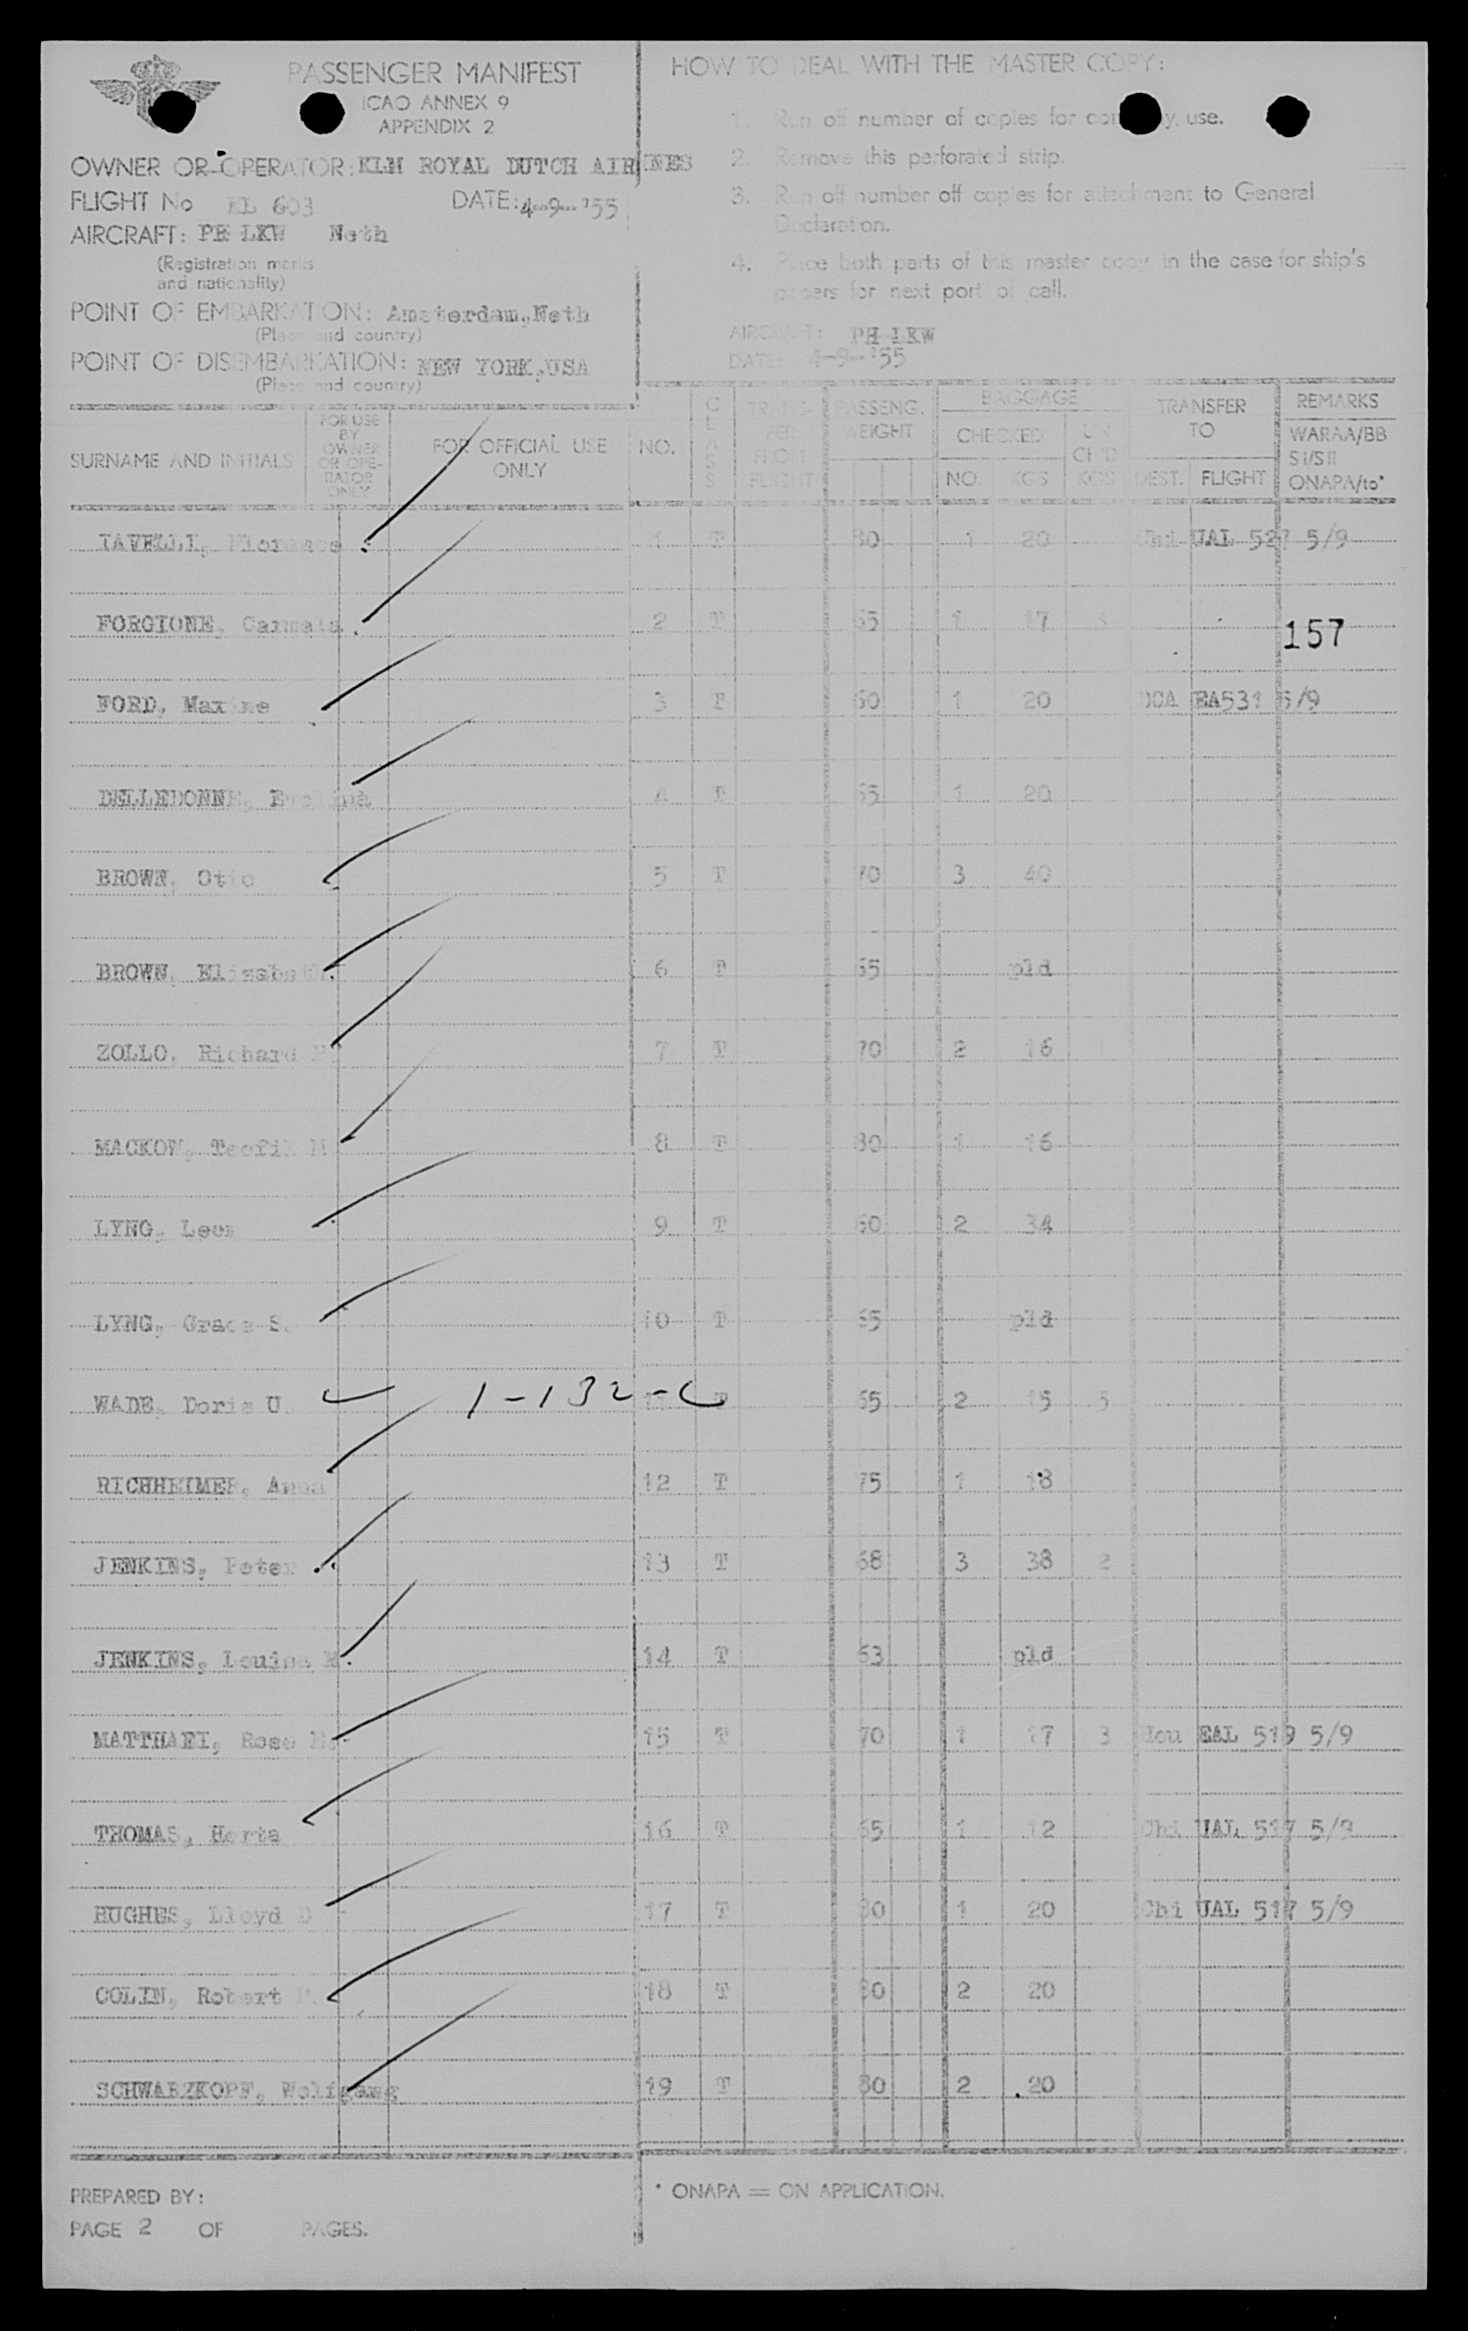 PASSENGER MANIFEST
ICAO ANNEX 9
APPENDIX 2
OWNER OR OPERATOR: KLM ROYAL DUTCH AIRLINES
FLIGHT No KL 603 DATE: 4-9-'55
AIRCRAFT: PH LKW Neth
(Registration marks
and nationality)
POINT OF EMBARKATION: Amsterdam, Neth
(Place and country)
POINT OF DISEMBARKATION: NEW YORK, USA
(Place and country)
HOW TO DEAL WITH THE MASTER COPY:
1. Run off number of copies for company use.
2. Remove this perforated strip.
3. Run off number off copies for attachment to General
Declaration.
4. Place both parts of this master copy in the case for ship's
papers for next port of call.
AIRCRAFT: PH LKW
DATE: 4-9-'55
SURNAME AND INITIALS FOR USE BY OWNER OR OPE-RATOR ONLY FOR OFFICIAL USE ONLY NO. CLASS FLIGHT PASSENG. WEIGHT BAGGAGE CHECKED NO. KGS UN CH'D KGS TRANSFER TO DEST. FLIGHT REMARKS WARAA/BB SI/SII ONAPA/to*
TAVELLI, Florence 1 T 80 1 20 Chi UAL 527 5/9
FORGIONE, 2 T 65 1 17
157
FORD, Maxine 3 T 60 1 20 DCA EA531 5/9
DELLEDONNE, 4 T 65 1 20
BROWN, Otto 5 T 70 3 40
BROWN, Elisabeth 6 T 65 pld
ZOLLO, Richard 7 T 70 2 16
MACKOW, Teofil M 8 T 80 1 16
LYNG, Leon 9 T 60 2 34
LYNG, Grace S. 10 T 65 pld
WADE, Doris U. 1-132-C T 65 2 15 5
RICHHEIMER, Anna 12 T 75 1 18
JENKINS, Peter 13 T 68 3 38 2
JENKINS, Louise M. 14 T 63 pld
MATTHAEI, Rose 15 T 70 1 17 3 Hou EAL 519 5/9
THOMAS, Herta 16 T 65 1 12 Chi UAL 517 5/9
HUGHES, Lloyd D 17 T 80 1 20 Chi UAL 517 5/9
COLIN, Robert 18 T 80 2 20
SCHWARZKOPF, Wolfgang 19 T 80 2 20
PREPARED BY:
PAGE 2 OF PAGES.
* ONAPA = ON APPLICATION.